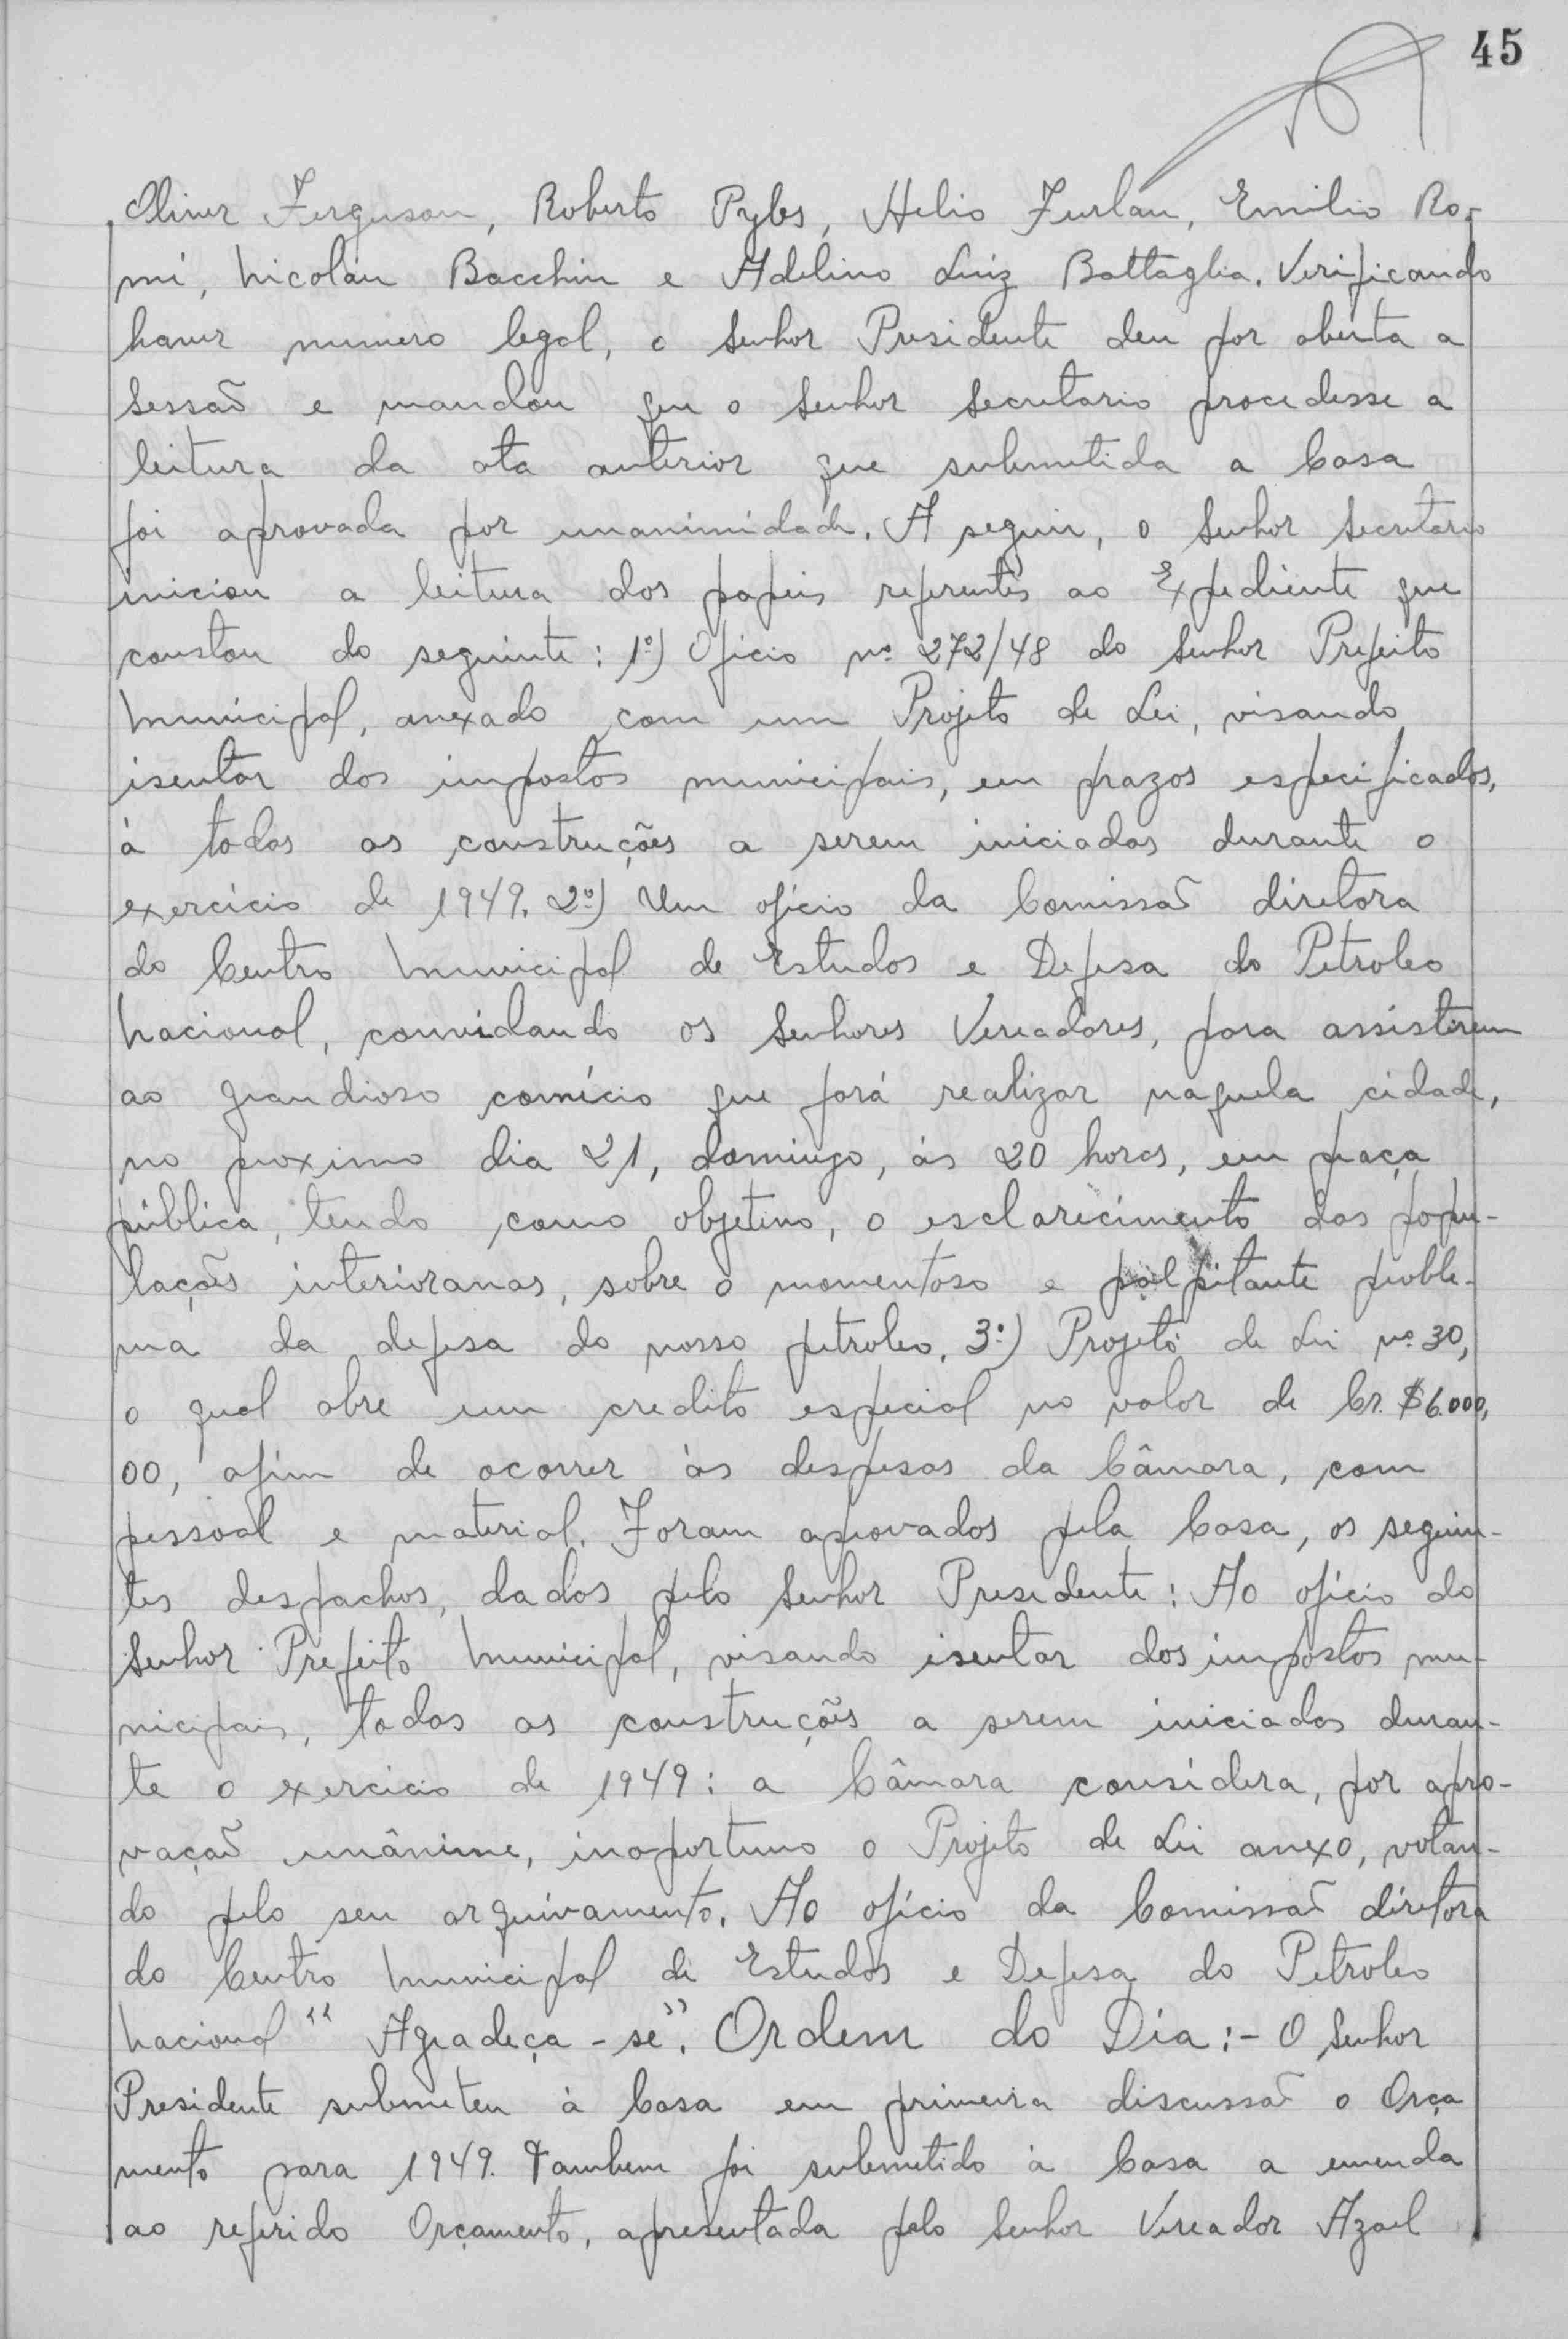 45
Oliver Ferguson, Roberto Pyles, Helio Furlan, Emilio Ro-
mi, Nicolau Bacchin e Adelino Luiz Battaglia. Verificando
haver numero legal, o Senhor Presidente deu por aberta a
Sessaõ e mandou que o Senhor Secretario procedesse a
leitura da ata anterior que submetida a Casa
foi aprovada por unanimidade. A seguir, o Senhor Secretario
iniciou a leitura dos papeis referentes ao Expediente que
constou do seguinte: 1º) Oficio nº 272/48 do Senhor Prefeito
Municipal, anexado com um Projeto de Lei, visando
isentar dos impostos municipais, em prazos especificados,
á todas as construções a serem iniciadas durante o
exercício de 1949. 2º) Um ofício da Comissaõ diretora
do Centro Municipal de Estudos e Defesa do Petroleo
Nacional, convidando os Senhores Vereadores, para assisterem
ao grandioso comício que fará realizar naquela cidade,
no proximo dia 21, domingo, ás 20 horas, em praça
pública, tendo como objetivo, o esclarecimento das popu-
lações interioranas, sobre o momentoso e palpitante proble-
ma da defesa do nosso petroleo. 3º) Projeto de Lei nº 30,
o qual abre um credito especial no valor de Cr. $6.000,
00, afim de ocorrer ás despesas da Câmara, com
pessoal e material. Foram aprovados pela Casa, os seguin-
tes despachos, dados pelo Senhor Presidente: Ao ofício do
Senhor Prefeito Municipal, visando isentar dos impostos mu-
nicipais, todas as construções a serem iniciadas duran-
te o exercício de 1949: a Câmara considera, por apro-
vaçaõ unânime, inoportuno o Projeto de Lei anexo, votan-
do pelo seu arquivamento. Ao ofício da Comissaõ diretora
do Centro Municipal de Estudos e Defesa do Petroleo
Nacional "Agradeça-se". Ordem do Dia:- O Senhor
Presidente submeteu á Casa em primeira discussaõ o Orça
mento para 1949. Tambem foi submetido á Casa a emenda
ao referido Orçamento, apresentada pelo Senhor Vereador Azael